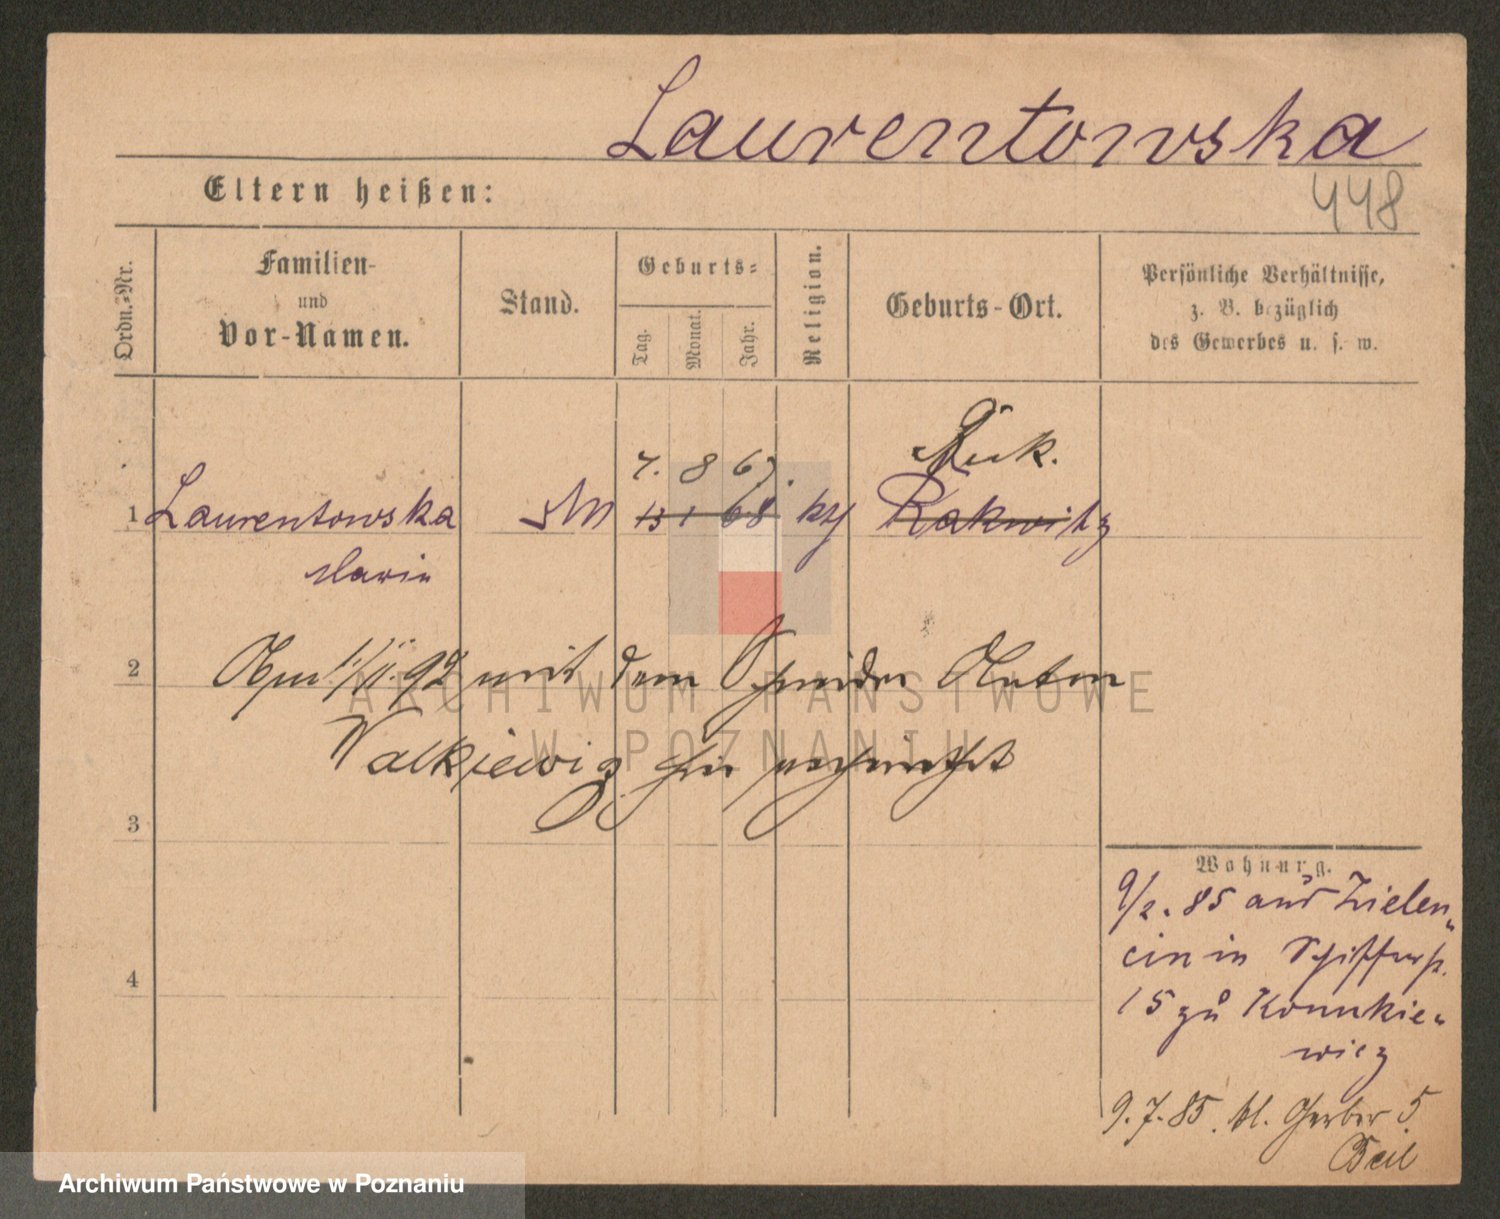 Laurentowska
448
Eltern heißen:
Ordn.-Nr.
Familien-
und
Vor-Namen.
Stand.
Geburts-
Tag.
Monat.
Jahr.
Religion.
Geburts-Ort.
Persönliche Verhältnisse,
z. B. bezüglich
des Gewerbes u. s. w.
7. 8 67.
1 Laurentowska
13 1 68
Rakwitz
Marie
2 Am 1/II. 92 mit dem Schneider Anton
Walkiewicz hier
3
Wohnung.
9/2. 85 aus Zielen-
cin in Schifferstr.
15 zu
wicz
4
9.7.85. kl. Gerber 5.
ARCHIWUM PAŃSTWOWE
W POZNANIU
Archiwum Państwowe w Poznaniu